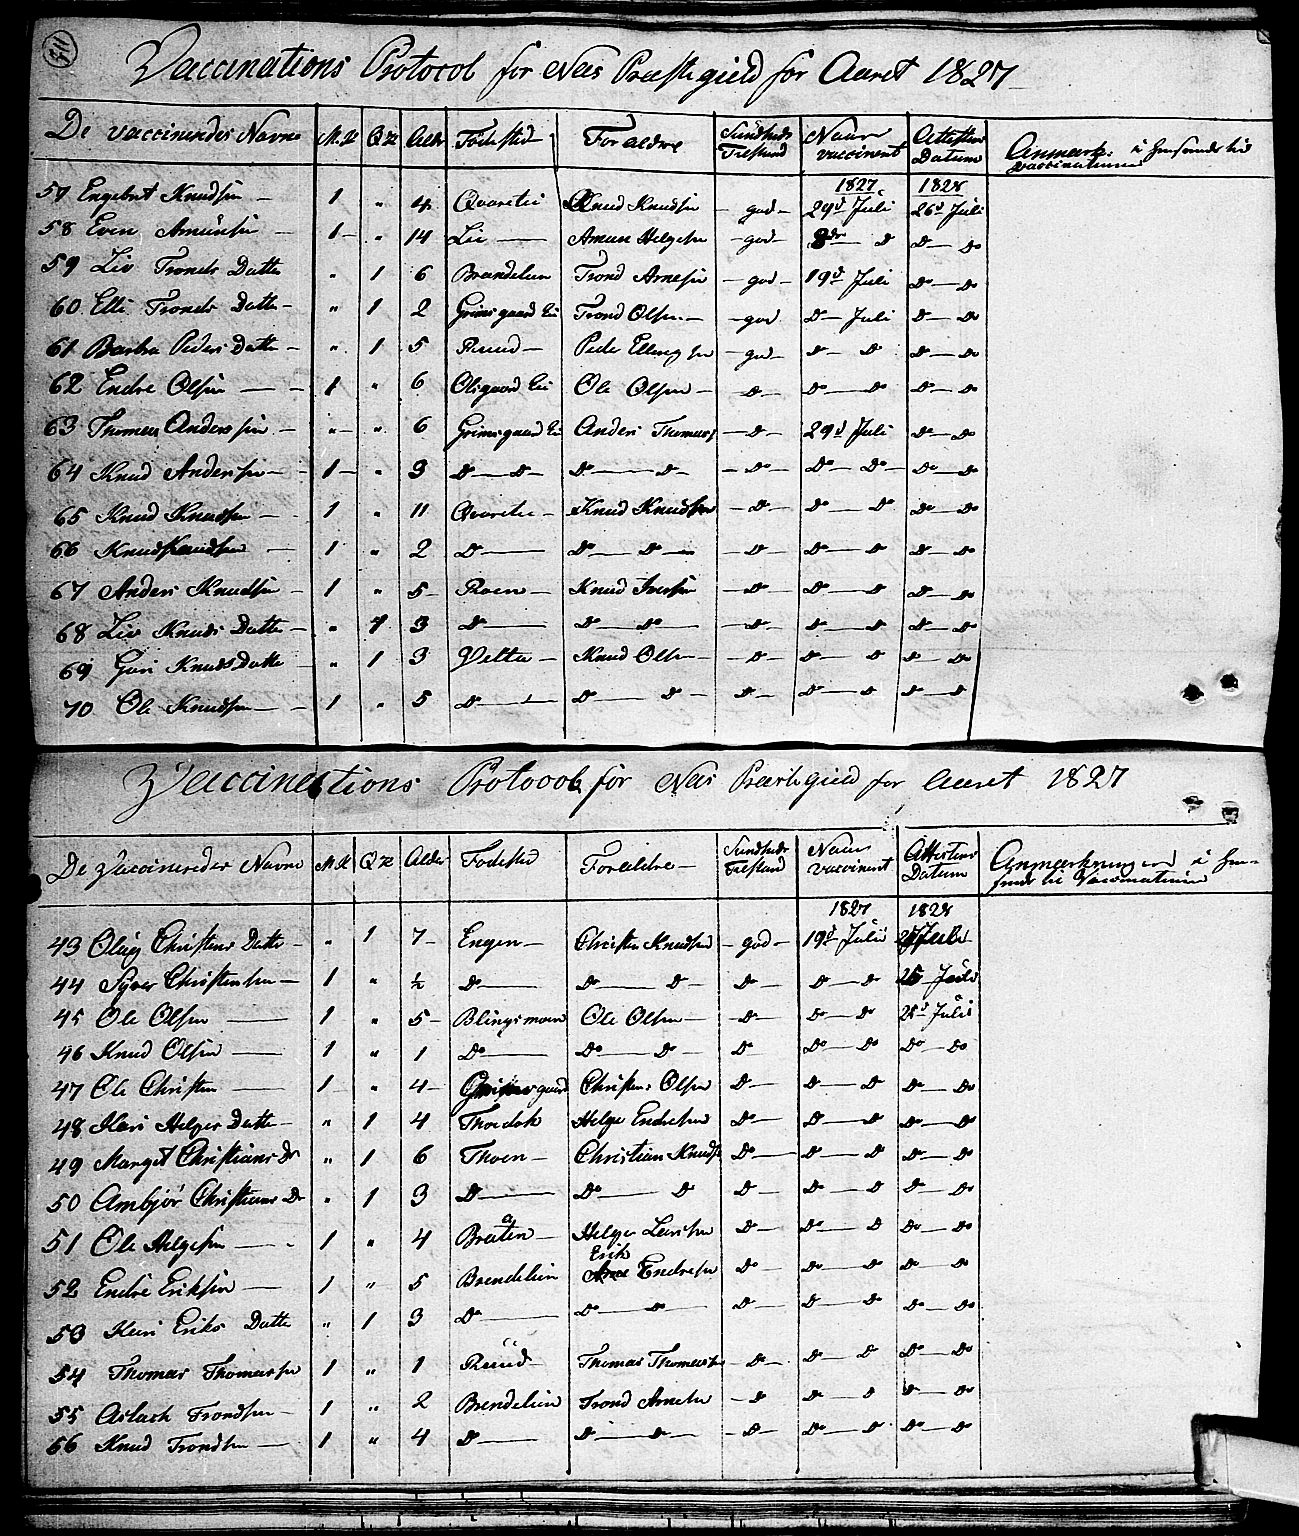 Vaccinations Protocol for Næs Præstegield for Aaret 1827
De vaccineredes Navne M.K Q.K Alder Fødested Forældre Sundheds Tilstand Naar vaccineret Attestens Datum Anmærk: i Henseende til vaccinationen
1827 1828
57 Engebret Knudsen 1 " 4 Qvaretie Knud Knudsen - god - 29d Juli 26d Juli
58 Even Amunsen 1 " 14 Lie Amun Helgesen - god - do do do
59 Liv Tronds Datter " 1 6 Brendelien Trond Arnesen - god - 19d Juli do do
60 Elli Tronds Datter " 1 2 Grimsgaard Eie Trond Olsen - god do Juli do do
61 Barbra Peders Datter " 1 5 Ruud Peder Ellingsen - god do do do do
62 Endre Olsen 1 " 6 Olsgaard Eie Ole Olsen do do do do do
63 Thomas Andersen " " 6 Grimsgaard Ei Anders Thomas do 29d Juli do do
64 Knud Andersen 1 " 3 do do do do do do do do do
65 Knud Knudsen 1 " 11 Qvaretie Knud Knudsen do do do do do
66 Knud Knudsen 1 " 2 do do do do do do do do
67 Anders Knudsen 1 " 5 Roen Knud Iversen do do do do do
68 Liv Knuds Datter " 1 3 do do do do do do do do
69 Guri Knuds Datter " 1 3 Velta Knud Olsen do do do do do
70 Ole Knudsen 1 " 5 do do do do do do do do
Vaccinations Protocol for Næs Præstegield for Aaret 1827
De Vaccineredes Navne M.K Q.K Alder Fødested Forældre Sundheds Tilstand Naar vaccineret Attestens Datum Anmærkninger i Henseende til Vaccinationen
1827 1828
43 Olaug Christens Datter " 1 7 Engen Christen Knudsen - god - 19d Juli Juli
44 Syver Christensen 1 " ½ do do do do do do 26 Juli
45 Ole Olsen 1 " 5 Blingsmoen Ole Olsen do do do 26d Juli
46 Knud Olsen 1 " 1 do do do do do do do do
47 Ole Christen 1 " 4 Grimsgaard Christen Olsen do do do do do
48 Kari Helges Datter " 1 4 Thordok Helge Endresen do do do do do
49 Marget Christians Dr " 1 6 Thoen Christian Knuds do do do do do
50 Ambjør Christians Dr " 1 3 do do do do do do do do
51 Ole Helgesen 1 " 4 Braaten Helge Larsen do do do do do
52 Endre Eriksen 1 " 5 Brendelien Erik Endresen do do do do do
53 Kari Eriks Datter " 1 3 do do do do do do do do
54 Thomas Thomassen 1 " 1 Ruud Thomas Thomassen do do do do do
55 Aslack Trondsen 1 " 2 Brendelien Trond Arnesen do do do do do
56 Knud Trondsen 1 " 4 do do do do do do do do